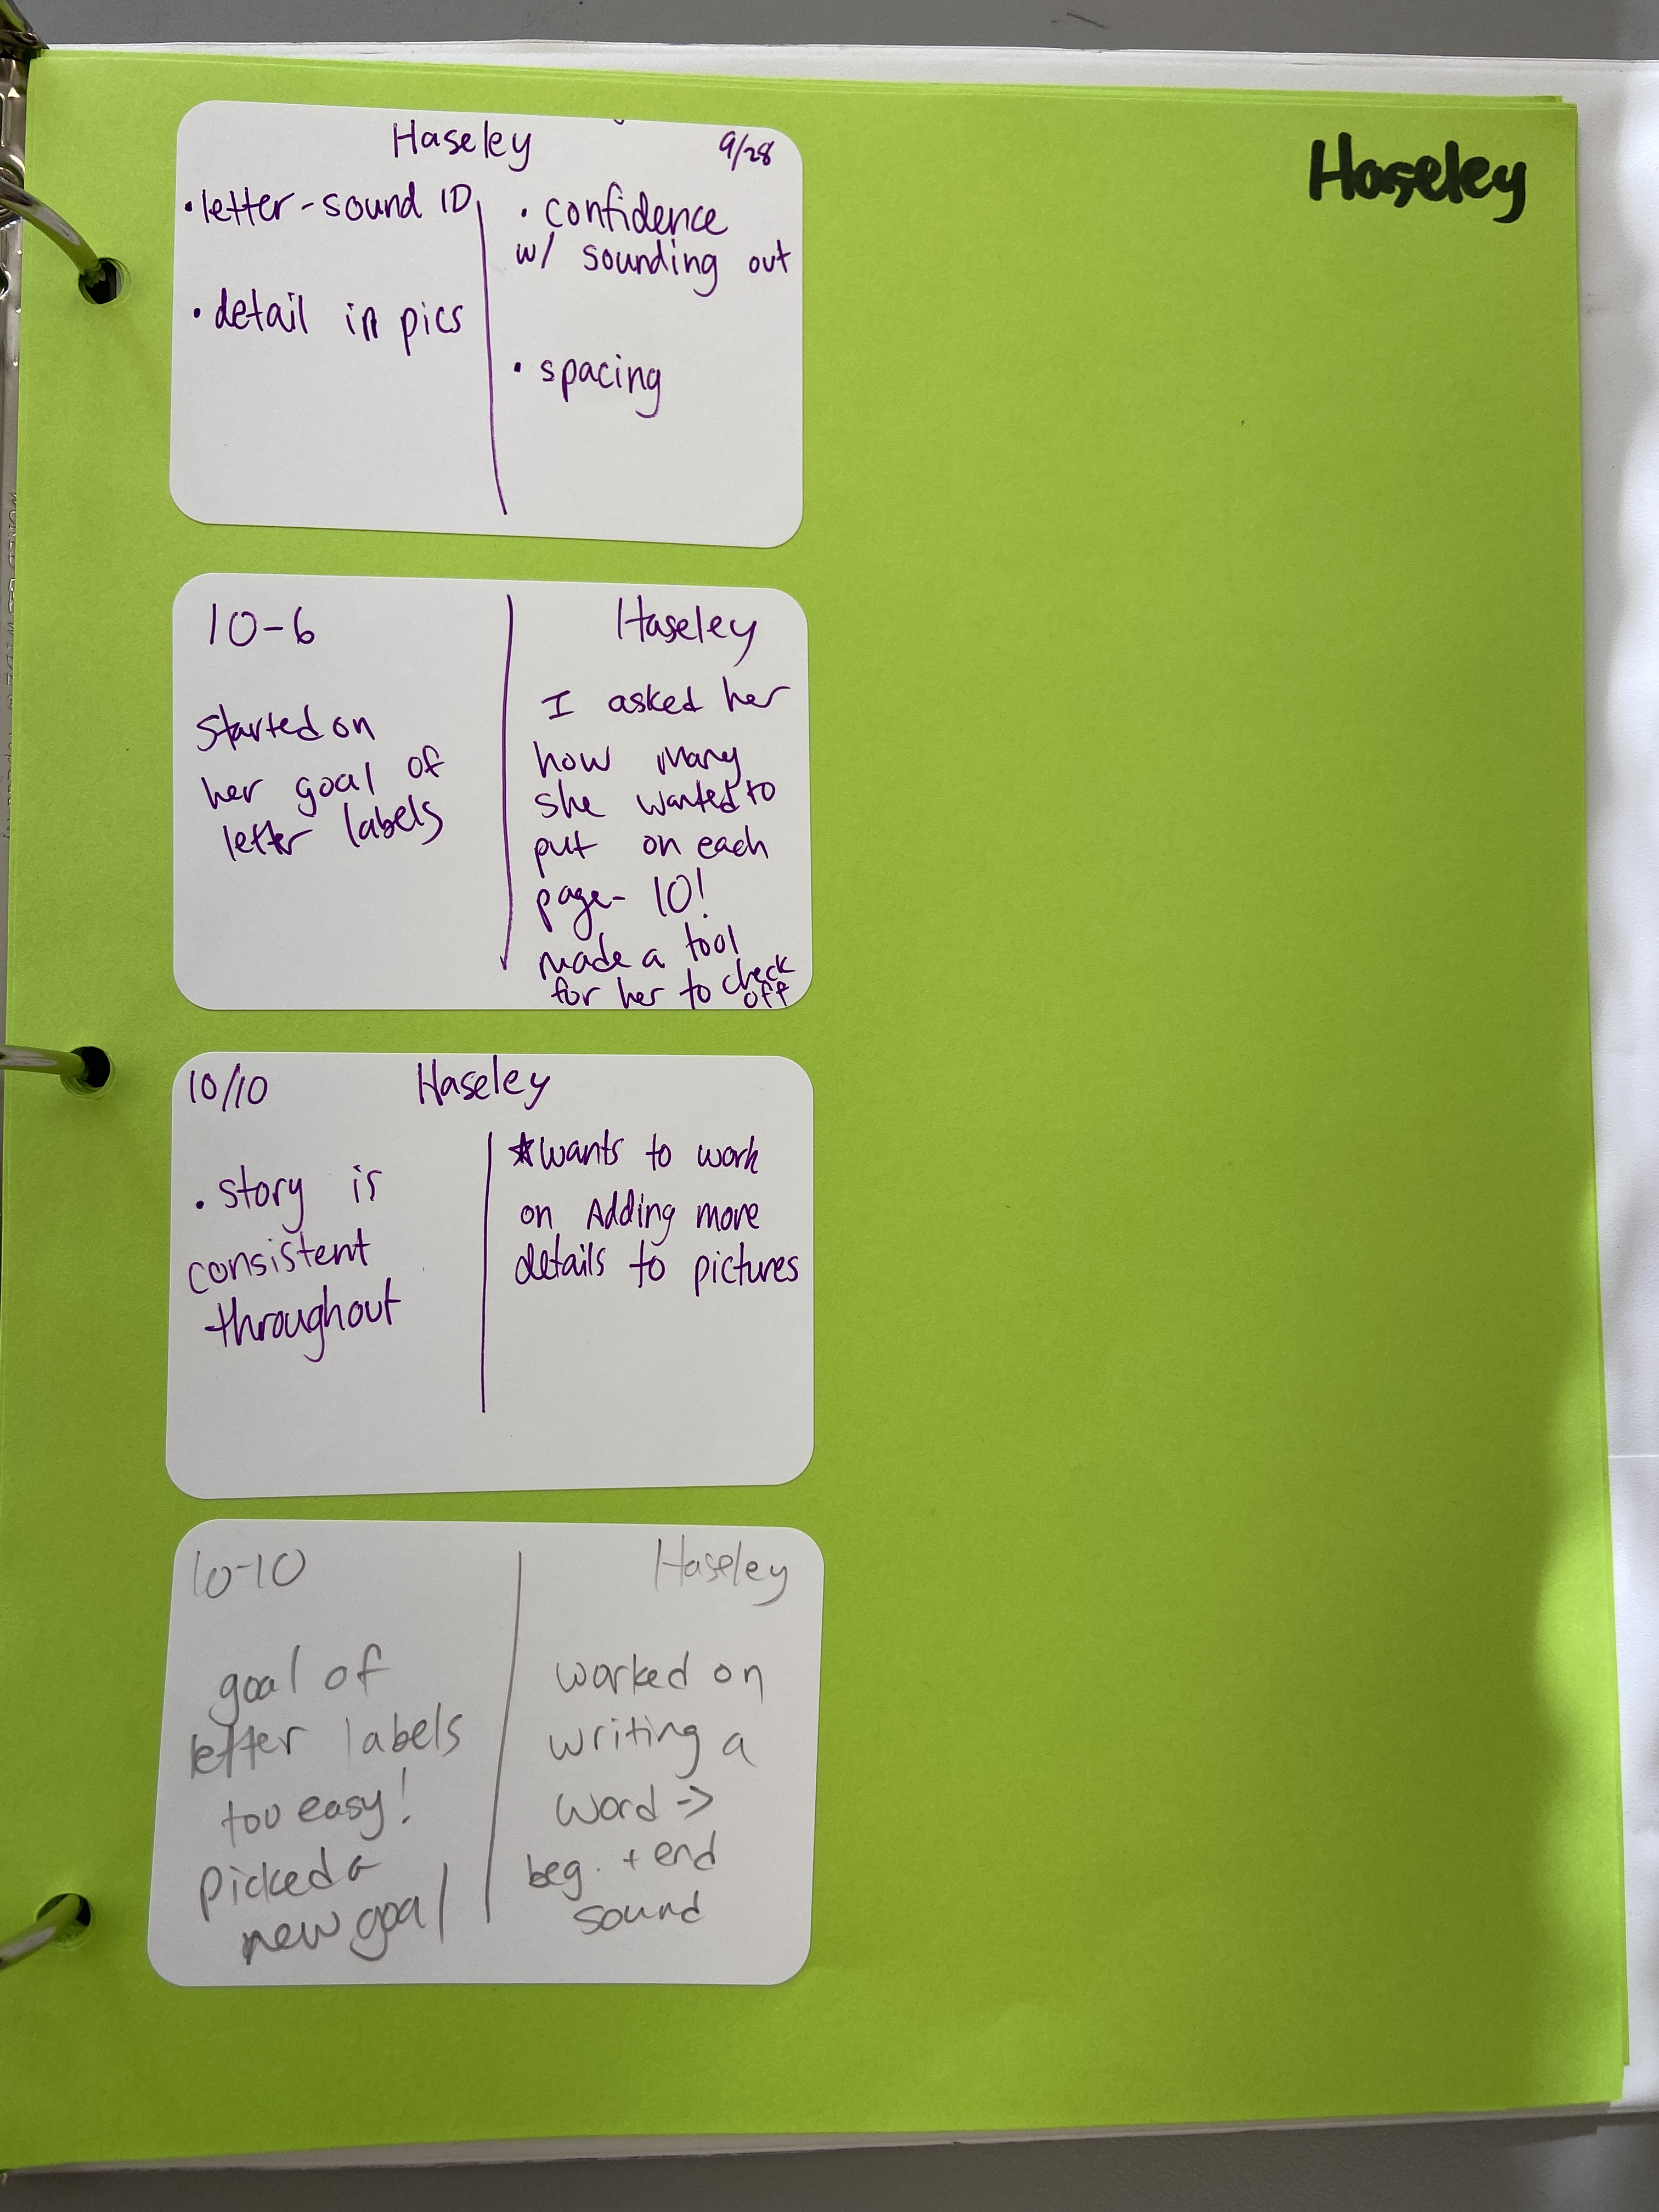 Haseley
Haseley 9/28
• letter-sound ID
• detail in pics
• confidence
w/ sounding out
• spacing
10-6
Started on
her goal of
letter labels
Haseley
I asked her
how many
she wanted to
put on each
page- 10!
made a tool
for her to check
off
10/10 Haseley
• story is
consistent
throughout
★wants to work
on Adding more
details to pictures
10-10
goal of
letter labels
too easy!
picked a
new goal
Haseley
worked on
writing a
word ->
beg. + end
sound